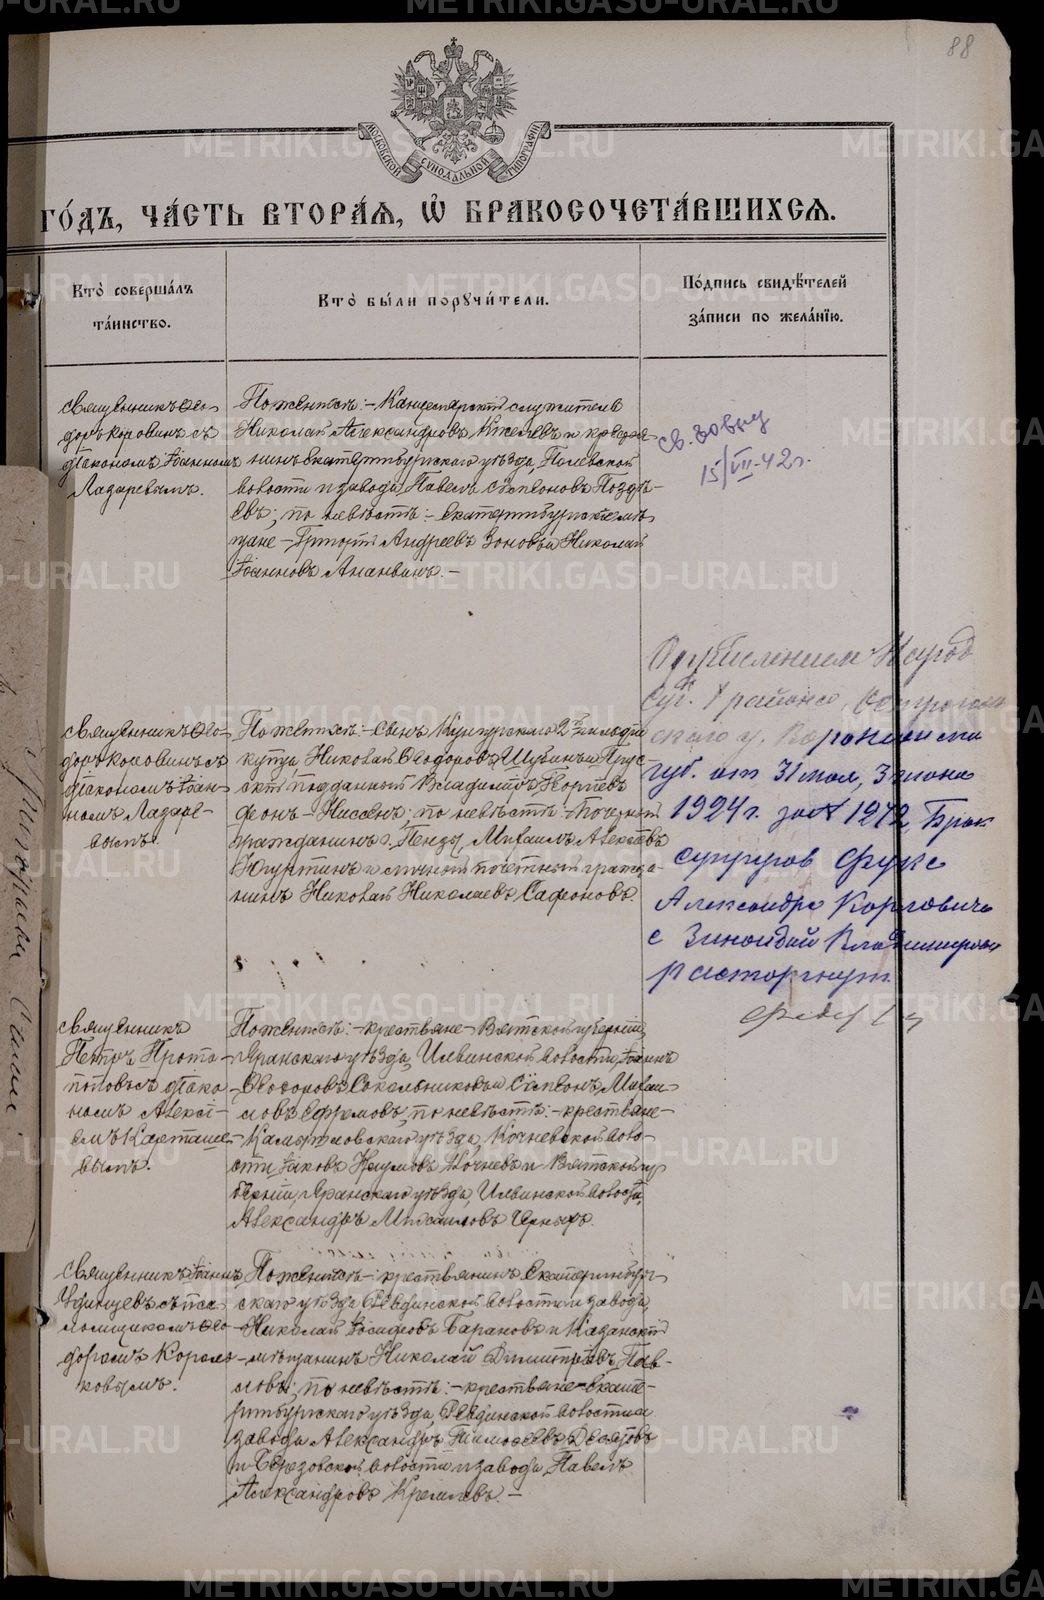 88
МОСКОВСКОЙ СѴНОДАЛЬНОЙ ТИПОГРАФІИ
ГО́ДЪ, ЧА́СТЬ ВТОРА́Я, Ѡ҆ БРАКОСОЧЕТА́ВШИХСЯ.
Кто̀ соверша́лъ
та́инство.
Кто̀ бы́ли порꙋчи́тели.
По́дпись свидѣ́телей
за́писи по жела́нїю.
Священникъ Ѳео-
доръ Коровинъ съ
діакономъ Іоанномъ
Лазаревымъ.
По женихѣ: – Канцелярскій служитель
Николай Александровъ и крестья-
нинъ Екатеринбургскаго уѣзда, Полевской
волости и завода Павелъ Симеоновъ Поздѣ-
евъ; по невѣстѣ: – Екатеринбургскіе мѣ-
щане – Григорій Андреевъ Зоновъ и Николай
Іоанновъ Ананьинъ. –
св. выд
15/VII-42 г.
Священникъ Ѳео-
доръ Коровинъ съ
діакономъ Іоан-
номъ Лазаре-
вымъ.
По женихѣ: – сынъ Кунгурскаго 2й гильдіи
купца Николай Ѳеодоровъ Шубинъ и Прус-
скій подданный Владиміръ Георгіевъ
фонъ-Ниссенъ; по невѣстѣ: – Почетный
гражданинъ г. Пензы, Михаилъ Алексѣевъ
и личный почетный гражда-
нинъ Николай Николаевъ Сафоновъ.
Определением Народ
Суд. 1 района, Острогож
ского у. Воронежской
губ. от 31 мая, 3 июня
1924 г. за № 1272 Брак
супругов Фукс
Александра Карловича
с Зинаидой Владимировой
расторгнут.
Священникъ
Петръ Прото-
поповъ съ діако-
номъ Алексі-
емъ Карташе-
вымъ.
По женихѣ: – крестьяне – Вятской губерніи,
Яранскаго уѣзда, Илвинской волости, Іоаннъ
Ѳеодоровъ Сокольниковъ и Симеонъ Михаи-
ловъ Ефремовъ; по невѣстѣ: – крестьяне –
Камышловскаго уѣзда, Кочневской воло-
сти Іаковъ Наумовъ Кочневъ и Вятской гу-
берніи, Яранскаго уѣзда, Илвинской волости,
Александръ Михаиловъ Черныхъ.
Священникъ Іоаннъ
Удинцевъ съ пса-
ломщикомъ Ѳео-
доромъ Корол-
ковымъ.
По женихѣ: – крестьянинъ Екатеринбург-
скаго уѣзда Ревдинской волости и завода,
Николай Іосифовъ Барановъ и Казанскій
мѣщанинъ Николай Димитріевъ Пав-
ловъ; по невѣстѣ: – крестьяне – Екате-
ринбургскаго уѣзда, Ревдинской волости и
завода Александръ Тимоѳеевъ Десятовъ
и Березовской волости и завода, Павелъ
Александровъ Кремлевъ. –
METRIKI.GASO-URAL.RU